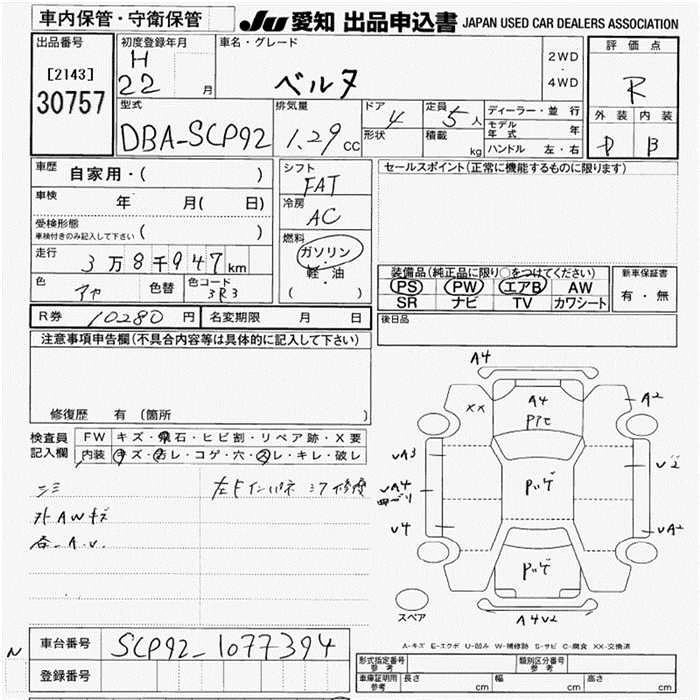 車内保管・守衛保管
JU 愛知 出品申込書 JAPAN USED CAR DEALERS ASSOCIATION
出品番号
[2143]
30757
初度登録年月
H
22 月
車名・グレード
ベルタ
2WD
・
4WD
評価点
R
外装 内装
D B
型式
DBA-SCP92
排気量
1.29 CC
ドア
4
形状
定員
5 人
積載
kg
ディーラー・並行
モデル年式 年
ハンドル 左・右
車歴
自家用・( )
車検
年 月( 日)
受検形態
車検付きのみ記入して下さい ( )
走行
3万8千947km
色
アカ
色替
色コード
3R3
シフト
FAT
冷房
AC
燃料
ガソリン
・
軽・油
( )
セールスポイント(正常に機能するものに限ります)
装備品(純正品に限り○をつけてください)
PS PW エアB AW
SR ナビ TV カワシート
新車保証書
有・無
R券 10280 円
名変期限 月 日
後日品
注意事項申告欄(不具合内容等は具体的に記入して下さい)
修復歴 有 (箇所 )
検査員
記入欄
FW キズ・飛石・ヒビ割・リペア跡・X要
内装 キズ・汚レ・コゲ・穴・スレ・キレ・破レ
外AWキズ
各-A.U.
左Fインパネ
修復
A4
XX
A4
A2
UA3
UA4
U4
U2
UA2
A4U2
スペア
A-キズ E-エクボ U-凹み W-補修跡 S-サビ C-腐食 XX-交換済
N
車台番号 SCP92-1077394
登録番号
形式指定番号
参考
類別区分番号
参考
車庫証明用
参考
長さ cm 幅 cm 高さ cm